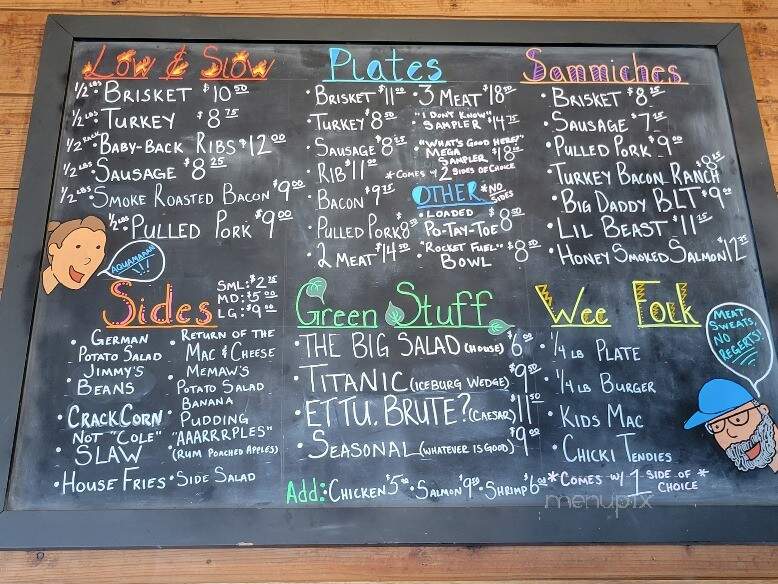 Low & Slow
½ LBS BRISKET $10 50
½ LBS TURKEY $8 75
½ RACK BABY-BACK RIBS $12 00
½ LBS SAUSAGE $8 25
½ LBS SMOKE ROASTED BACON $9 00
½ LBS PULLED PORK $9 00
AQUAMANNN!!
Plates
• BRISKET $11 00
• TURKEY $8 50
• SAUSAGE $8 25
• RIB $11 00
• BACON $9 75
• PULLED PORK $8 50
• 2 MEAT $14 50
• 3 MEAT $18 50
• "I DON'T KNOW"
SAMPLER $14 75
• "WHAT'S GOOD HERE?"
MEGA
SAMPLER $18 00
*COMES W/ 2 SIDES OF CHOICE
OTHER *NO
SIDES
• LOADED
PO-TAY-TOE $8 50
• "ROCKET FUEL"
BOWL $8 50
Sammiches
• BRISKET $8 25
• SAUSAGE $7 25
• PULLED PORK $9 00
• TURKEY BACON RANCH
• BIG DADDY BLT $9 00
• LIL BEAST $11 25
• HONEY SMOKED SALMON $12 25
Sides
SML: $2 75
MD: $5 00
LG: $9 00
• GERMAN
POTATO SALAD
• JIMMY'S
BEANS
• CRACK CORN
• NOT "COLE"
SLAW
• HOUSE FRIES
• RETURN OF THE
MAC & CHEESE
• MEMAW'S
POTATO SALAD
• BANANA
PUDDING
• "AAARRRPLES"
(RUM POACHED APPLES)
• SIDE SALAD
Green Stuff
• THE BIG SALAD (HOUSE) $6 00
• TITANIC (ICEBURG WEDGE) $9 50
• ET TU, BRUTE? (CAESAR) $11 50
• SEASONAL (WHATEVER IS GOOD) $9 00
Add: CHICKEN $5 00 • SALMON $9 00 • SHRIMP $6 00
Wee Folk
• ¼ LB PLATE
• ¼ LB BURGER
• KIDS MAC
• CHICKI TENDIES
*COMES W/ 1 SIDE OF *
CHOICE
MEAT
SWEATS,
NO
REGERTS!
menupix